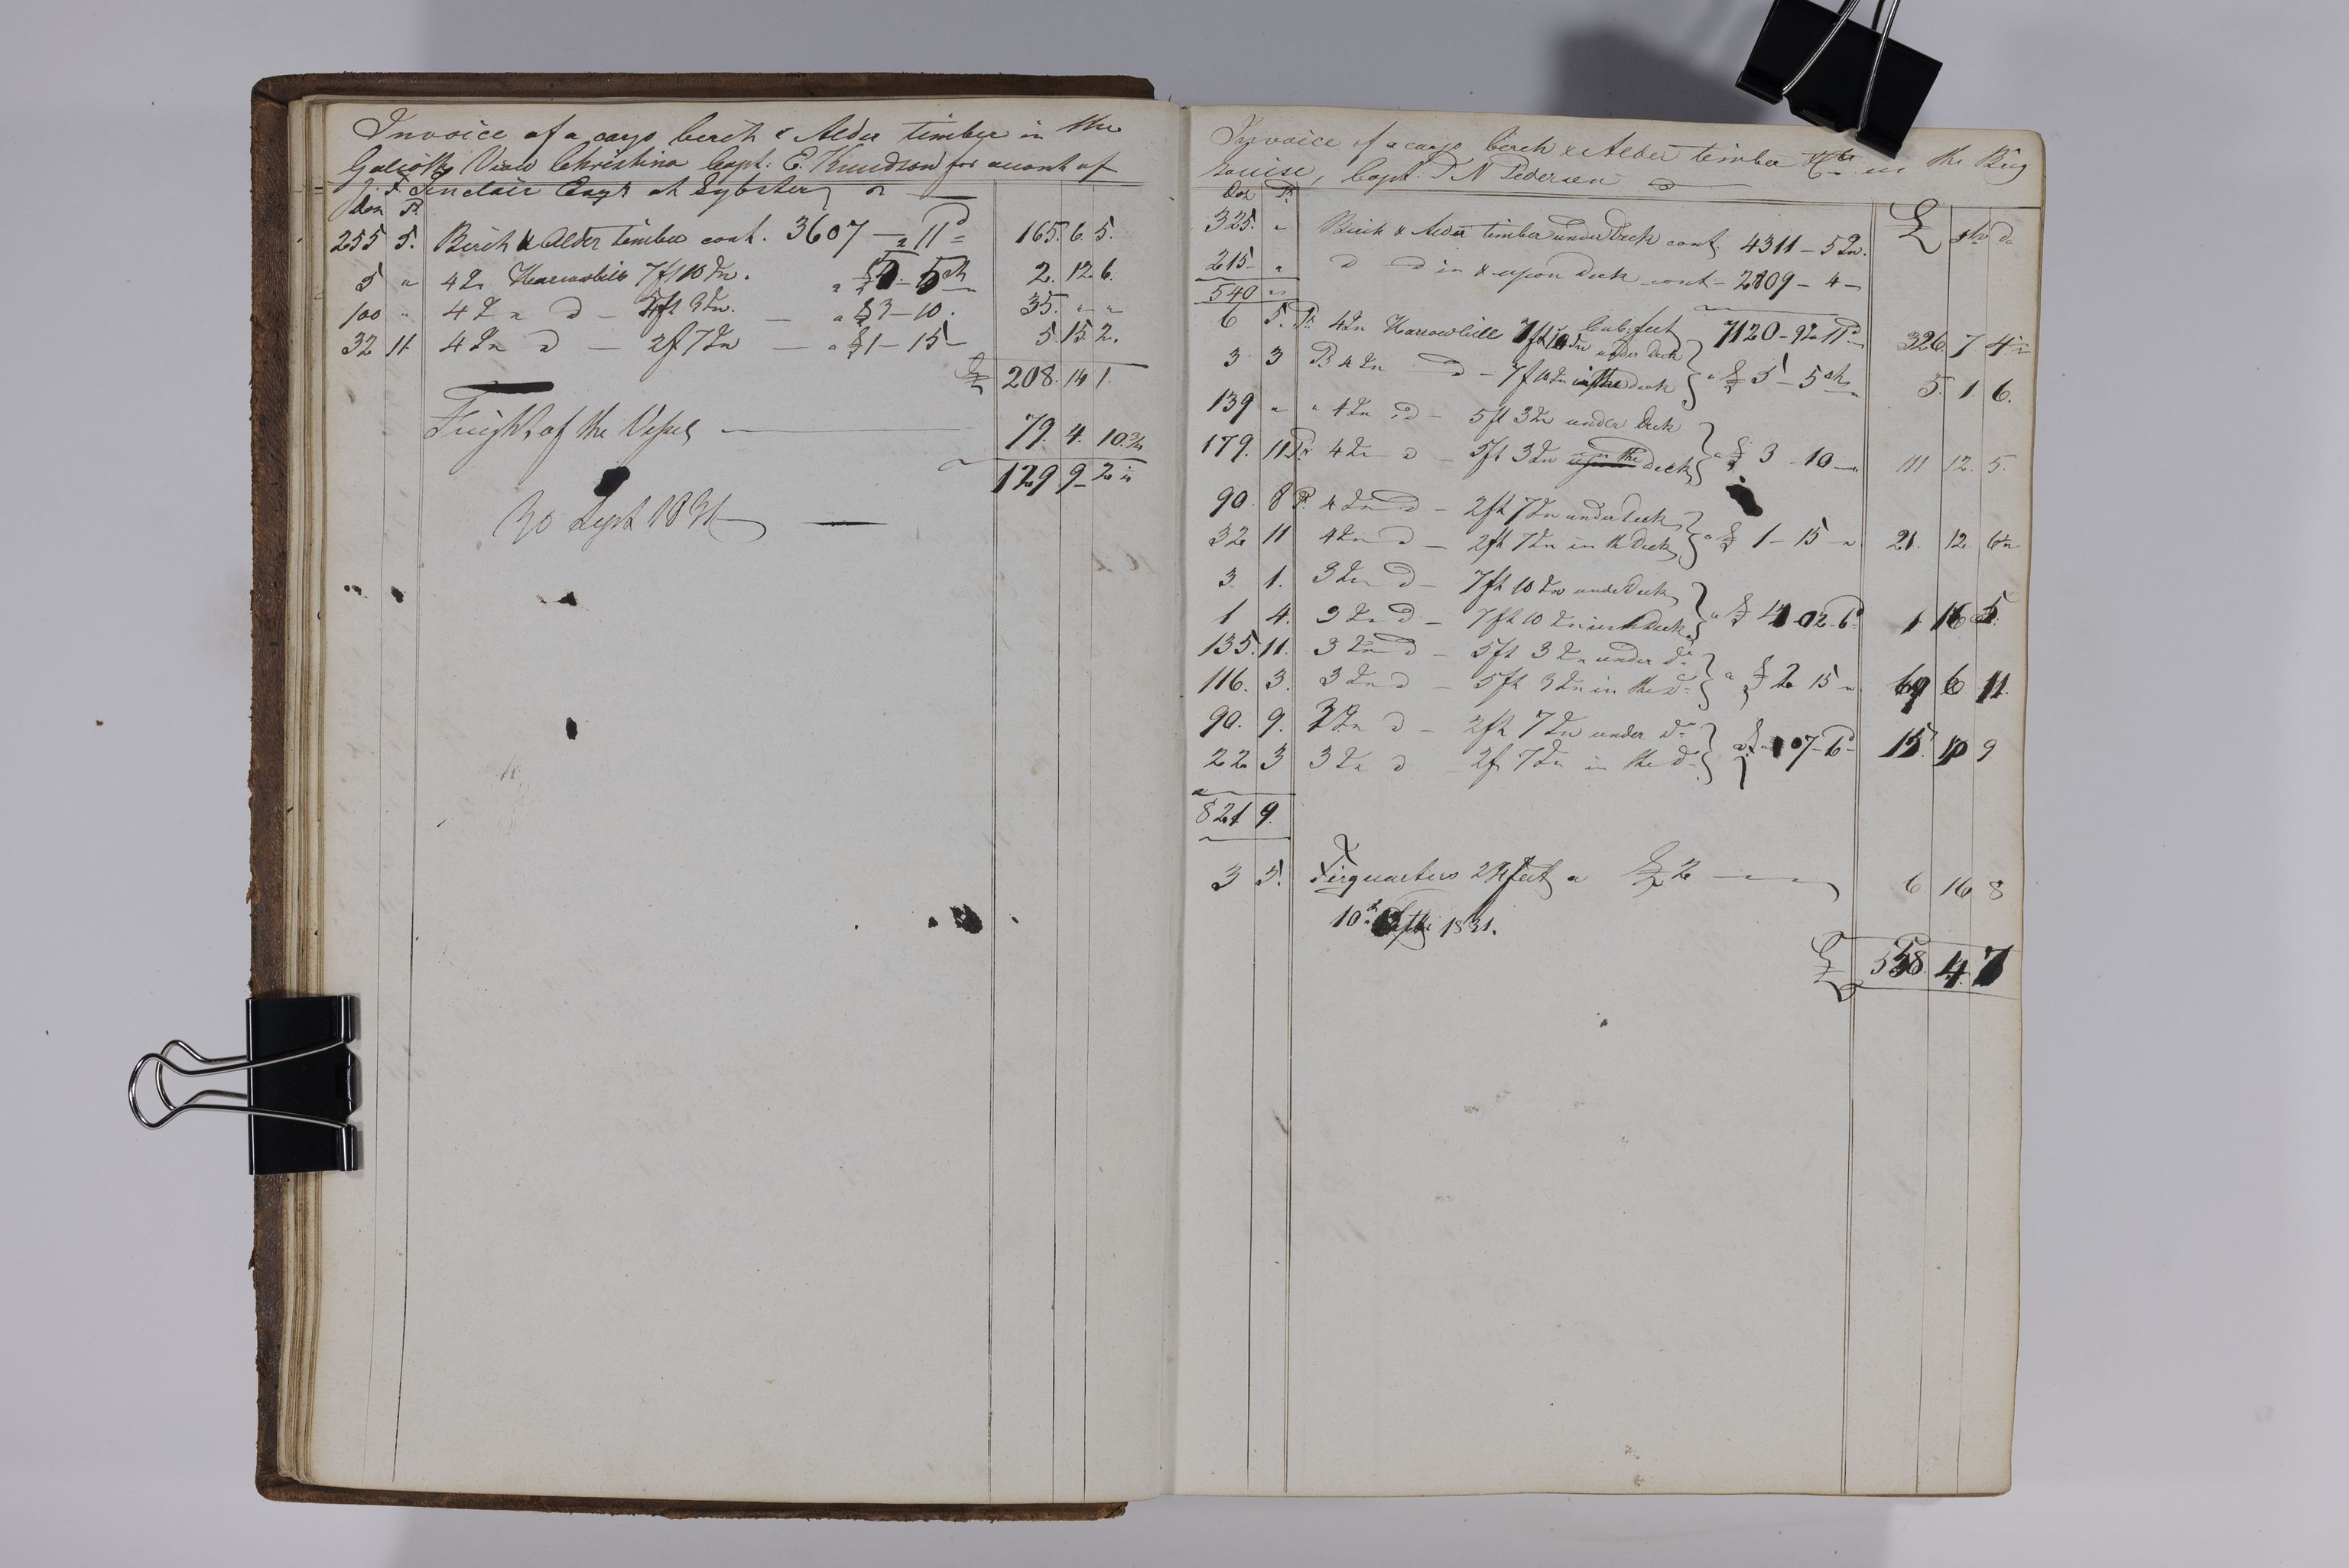 Invoice of a cargo birch & Alder timber in the
Galiott Vrow Christina Capt: E. Knudson for account of
J. F. Sinclair Esqr at Lybster
Doz P.
255 5. Birch & Alder timber cont. 3607 — a 11d 165. 6. 5.
5 " 4 In Harrowbills 7f 10 In. a £ — 5sh 2. 12. 6.
100 " 4 In d — 5ft 3 In. — a £3 — 10. 35. " "
32 11. 4 In d — 2f 7 In — a £1 — 15 — 5. 15. 2.
£ 208. 14 1.
Freight of the Vessel — 79. 4. 10
129 9 — 2
30 Sept 1831
Invoice of a cargo birch & Alder timber &c in the Brig
Louise, Capt: P N Pedersen
Doz P. £ sh d
325. " Birch & Alder timber under Deck cont 4311 — 5 In.
215 — " d d in & upon Deck cont — 2809 — 4 —
540 "
Cub: feet 7120 — 9 In a 11d 326. 7 4
6 5. P. 4 In Harrowbill 7ft 10 In under Deck
3 3 P 4 In d — 7f 10 In in the deck } a £ 5 — 5sh 5. 1. 6.
139 " " 4 In d — 5ft 3 In under Deck
179. 11 P. 4 In d — 5ft 3 In upon the deck } a £ 3 — 10 — 111 12. 5.
90. 8 P. 4 In d — 2ft 7 In under Deck
32 11 4 In d — 2ft 7 In in the Deck } a £ 1 — 15 — 21. 12. 6
3 1. 3 In d — 7ft 10 In under Deck
1 4. 3 In d — 7ft 10 In in the Deck } a £ 4 02 — 6d 1 16 5.
135. 11. 3 In d — 5ft 3 In under d
116. 3. 3 In d — 5ft 3 In in the d } a £ 2 15 — 69 6 11.
90. 9. 3 In d — 2ft 7 In under d
22 3 3 In d — 2f 7 In in the d } a £ 1 07 — 6d 15. 10 9
821 9.
3 5. Firquarters 24 feet a £ 2 — 6 16 8
10th 1831.
£ 558. 4. 7